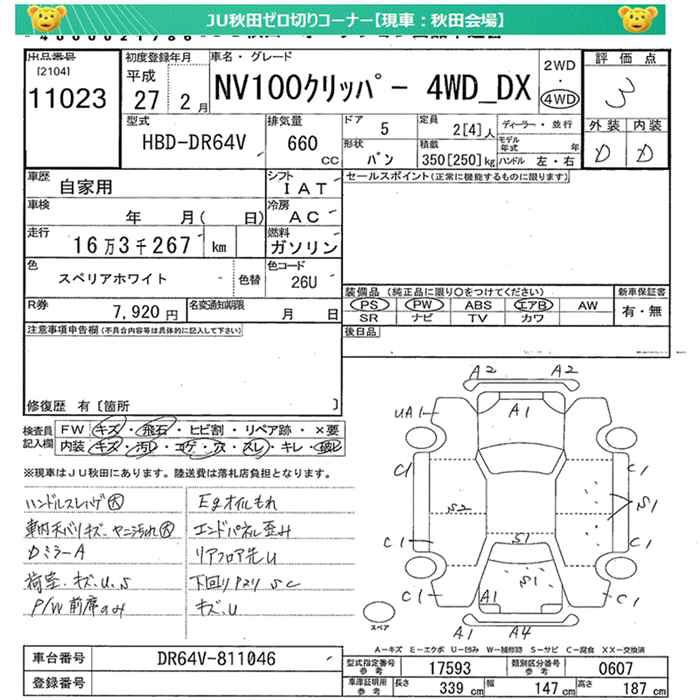 JU秋田ゼロ切りコーナー【現車：秋田会場】
出品番号
[2104]
11023
初度登録年月
平成
27 年 2 月
車名・グレード
NV100クリッパー 4WD_DX
2WD
・
4WD
評価点
3
外装 内装
D D
型式
HBD-DR64V
排気量
660 CC
ドア
5
定員
2[4]人
ディーラー・並行
形状
バン
積載
350[250]kg
モデル年式 年
ハンドル 左・右
車歴
自家用
シフト
IAT
セールスポイント(正常に機能するものに限ります)
車検
年 月( 日)
冷房
AC
走行
16万3千267 km
燃料
ガソリン
色
スペリアホワイト
色替
色コード
26U
R券
7,920 円
名変通知期限
月 日
装備品 (純正品に限り○をつけてください)
PS PW ABS エアB AW
SR ナビ TV カワ
新車保証書
有・無
後日品
注意事項申告欄(不具合内容等は具体的に記入して下さい)
修復歴 有[箇所 ]
検査員記入欄
FW キズ・飛石・ヒビ割・リペア跡・×要
内装 キズ・汚レ・コゲ・穴・スレ・キレ・破レ
※現車はJU秋田にあります。陸送費は落札店負担となります。
ハンドルスレハゲ大
車内ネバリキズ・ヤニ汚れ大
DミラーA
荷室・キズ、U、S
P/W前席のみ
Egオイルもれ
エンドパネル歪み
リアフロア先U
下回りサビ SC
キズ、U
A2 A2
UA1 A1
C1 C1
S2 S1
C1 S1 C1
C1 S1 C1
A1
A1 A4
スペア
A－キズ E－エクボ U－凹み W－補修跡 S－サビ C－腐食 XX－交換済
車台番号
DR64V-811046
登録番号
型式指定番号 参考
17593
類別区分番号 参考
0607
車庫証明用 参考
長さ 339 cm
幅 147 cm
高さ 187 cm